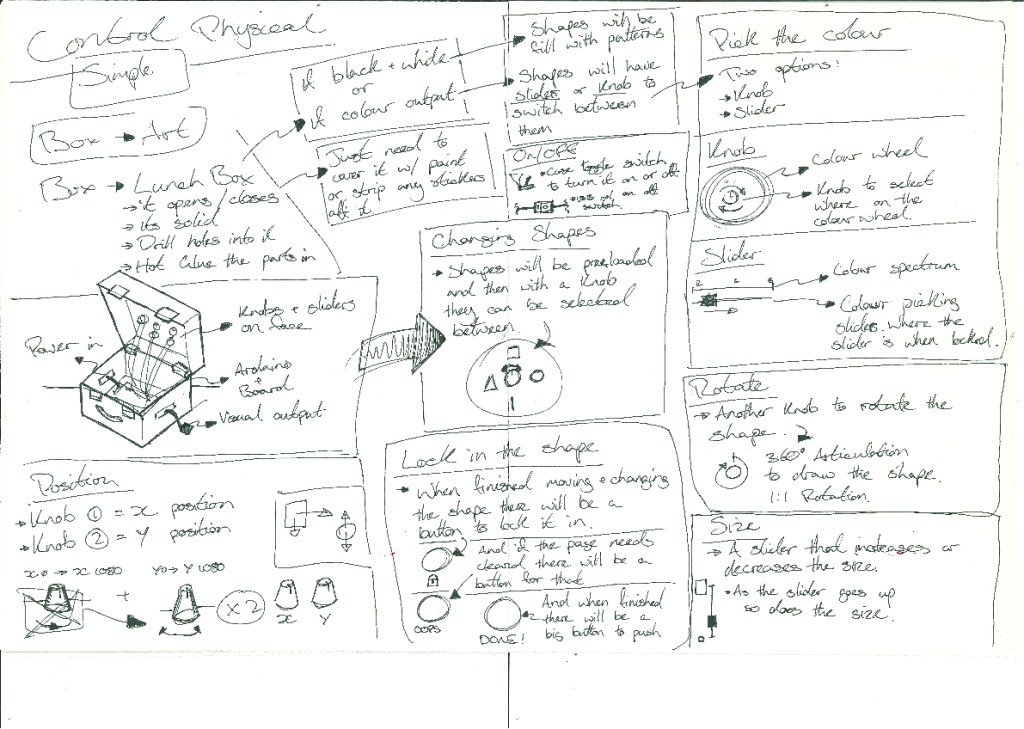 Control Physical
Simple
Box → Art
Box → Lunch Box
→ it opens/closes
→ its solid
→ Drill holes into it
→ Hot Glue the parts in
if black + white
or
if colour output
Just need to
cover it w/ paint
or strip any stickers
off it.
Shapes will be
fill with patterns
Shapes will have
slider or knob to
switch between
them
On/Off
toggle switch
to turn it on or off
on off
switch
Pick the colour
Two options:
→ Knob
→ Slider
Knob
Colour wheel
Knob to select
where on the
colour wheel.
Slider
Colour spectrum
Colour picking
slider. where the
slider is when locked.
Knobs + sliders
on face
Power in
Arduino
+
Board
Visual output
Changing Shapes
→ Shapes will be preloaded
and then with a Knob
they can be selected
between.
Lock in the shape
→ When finished moving + changing
the shape there will be a
button to lock it in.
And if the page needs
cleared there will be a
button for that
OOPS
And when finished
there will be a
big button to push
DONE!
Rotate
→ Another Knob to rotate the
shape.
360° Articulation
to draw the shape.
1:1 Rotation.
Size
→ A slider that increases or
decreases the size.
• As the slider goes up
so does the size.
Position
→ Knob 1 = x position
→ Knob 2 = y position
x0 → x 1080
y0 → y 1080
+
x2
x
y